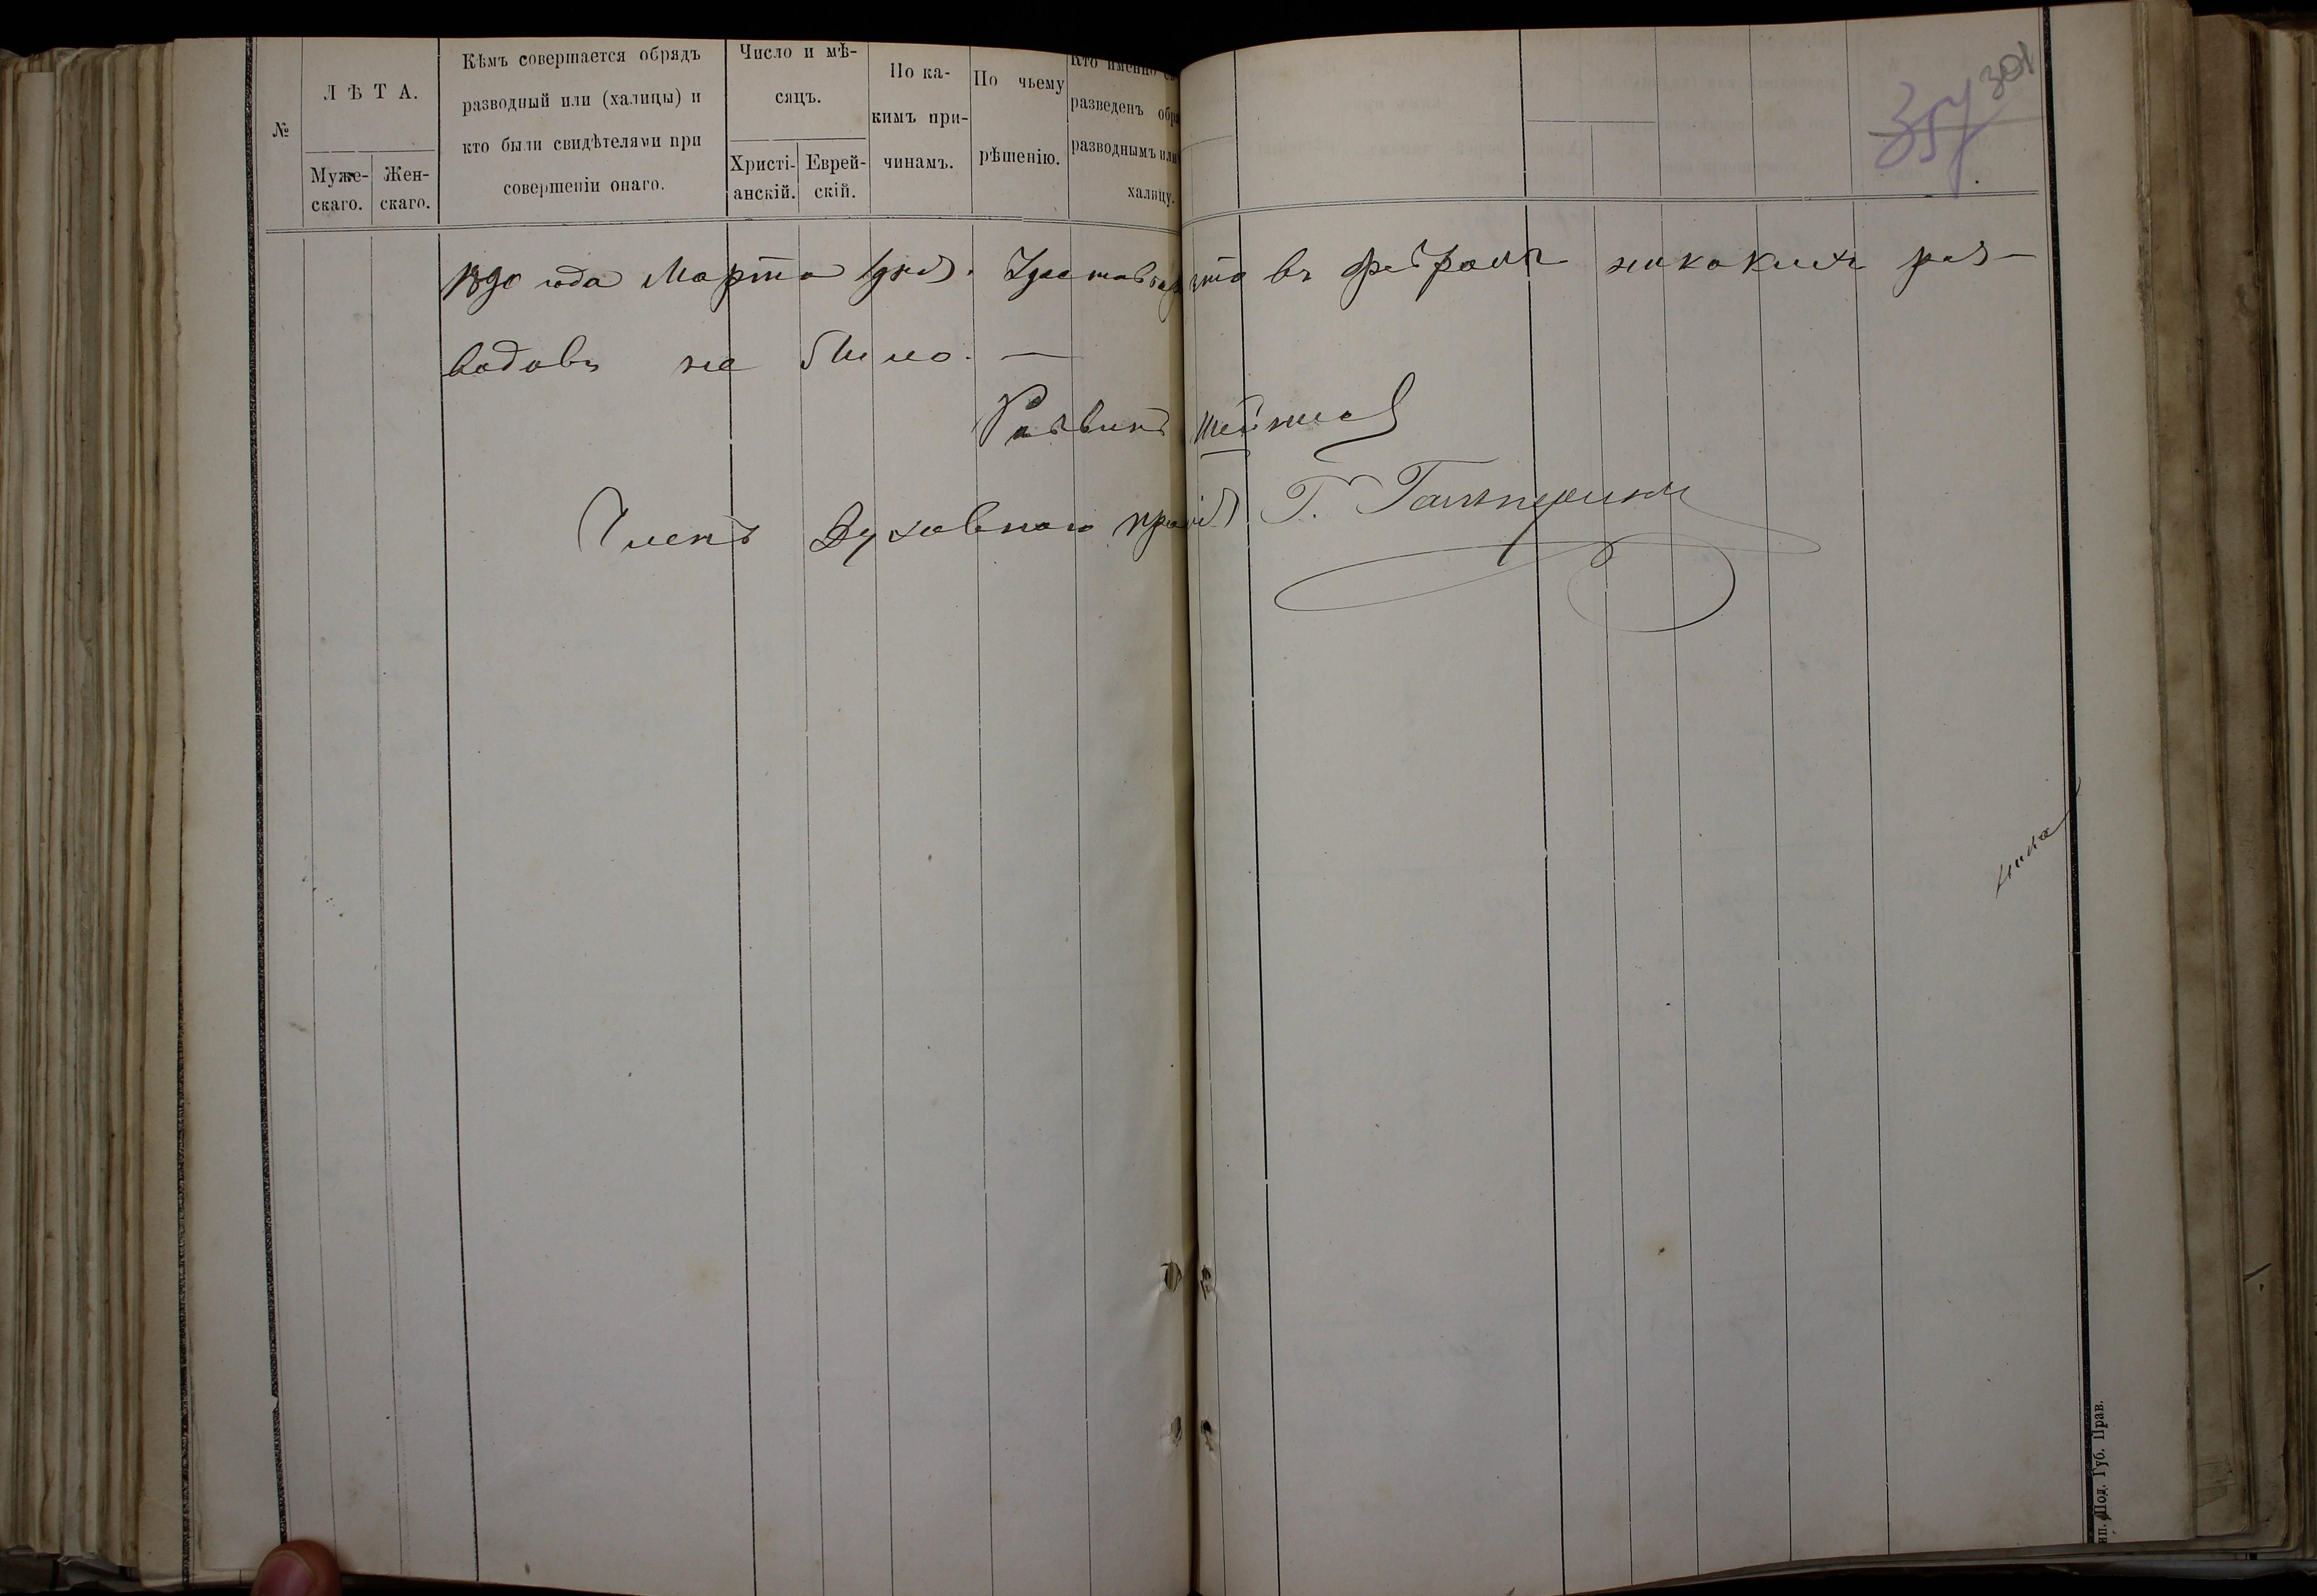 №
ЛѢТА.
Муже-
скаго.
Жен-
скаго.
Кѣмъ совершается обрядъ
разводный или (халицы) и
кто были свидѣтелями при
совершеніи онаго.
Число и мѣ-
сяцъ.
Христі-
анскій.
Еврей-
скій.
По ка-
кимъ при-
чинамъ.
По чьему
рѣшенію.
Кто именно
разведенъ обр
разводнымъ или
халицу.
357 301
1890 года Марта 1 дня. что въ февралѣ никакихъ раз-
водовъ не было. —
Раввинъ
Членъ Духовнаго Г. Гальперинъ
Под. Губ. Прав.